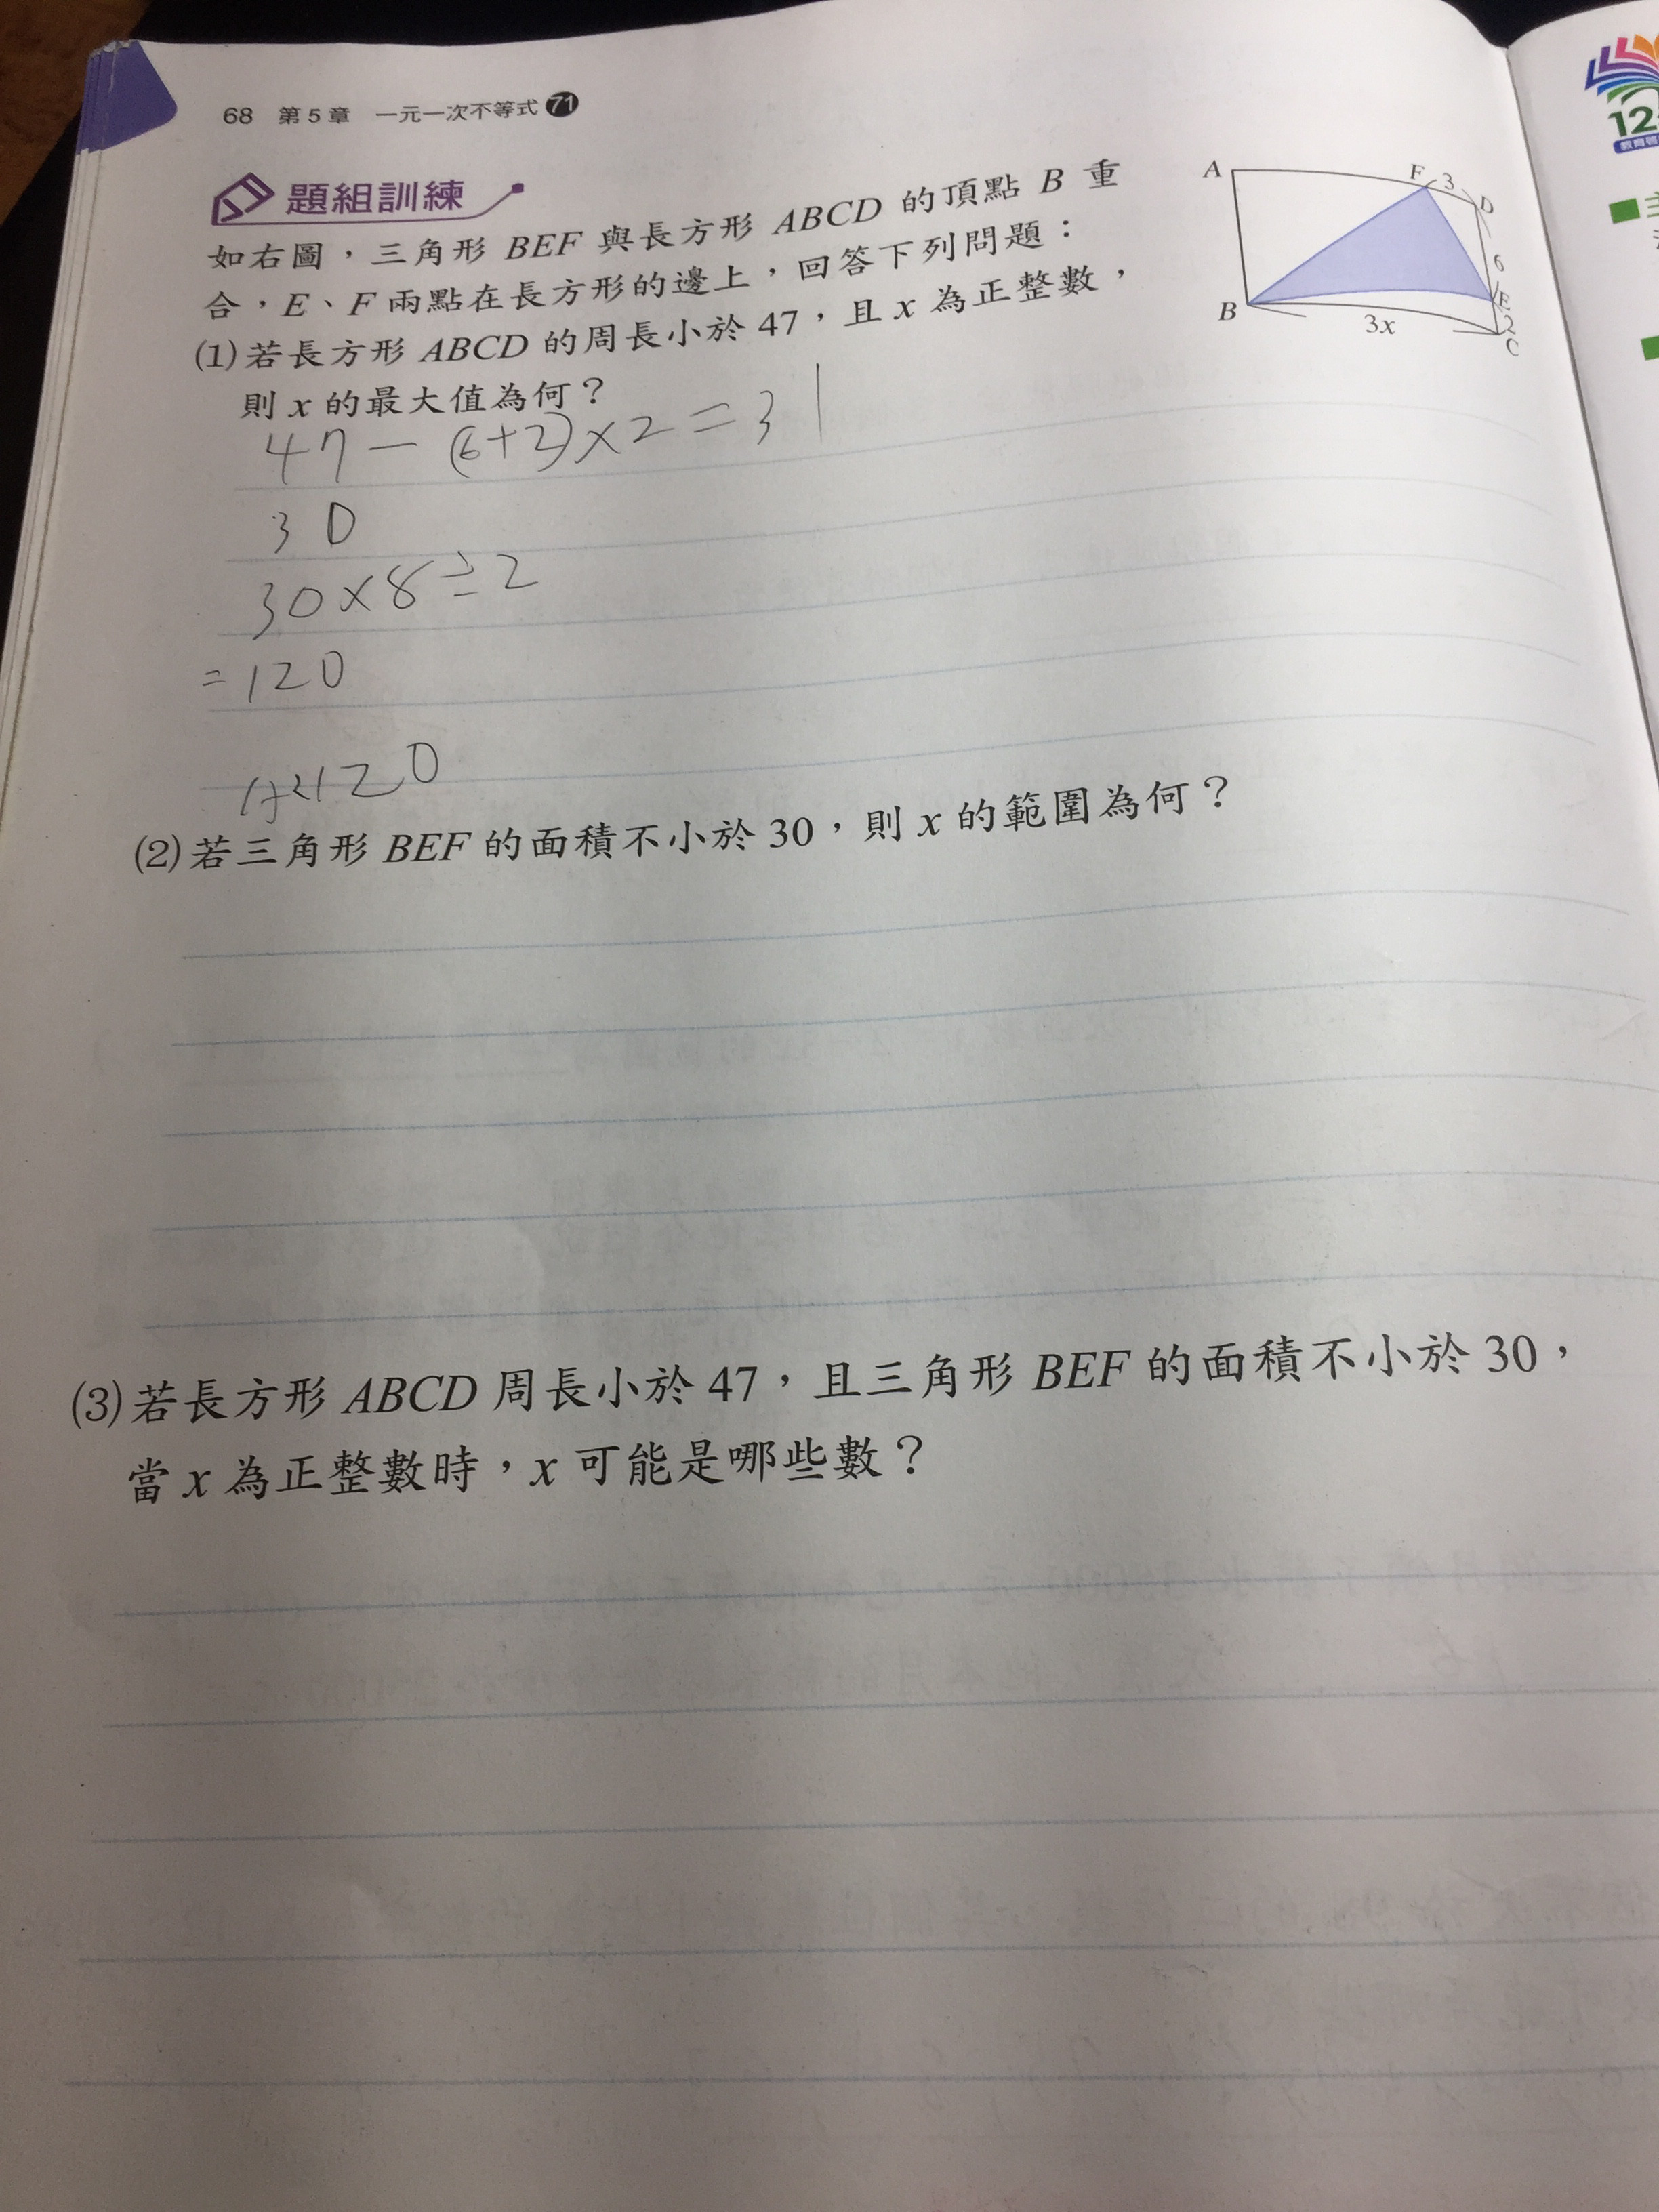 68 第5章 一元一次不等式 71
題組訓練
如右圖，三角形 BEF 與長方形 ABCD 的頂點 B 重
合，E、F 兩點在長方形的邊上，回答下列問題：
A
F
3
D
6
E
2
C
B
3x
(1)若長方形 ABCD 的周長小於 47，且 x 為正整數，
則 x 的最大值為何？
47 - (6+2)×2 = 31
30
30×8÷2
=120
(2)若三角形 BEF 的面積不小於 30，則 x 的範圍為何？
(3)若長方形 ABCD 周長小於 47，且三角形 BEF 的面積不小於 30，
當 x 為正整數時，x 可能是哪些數？
12